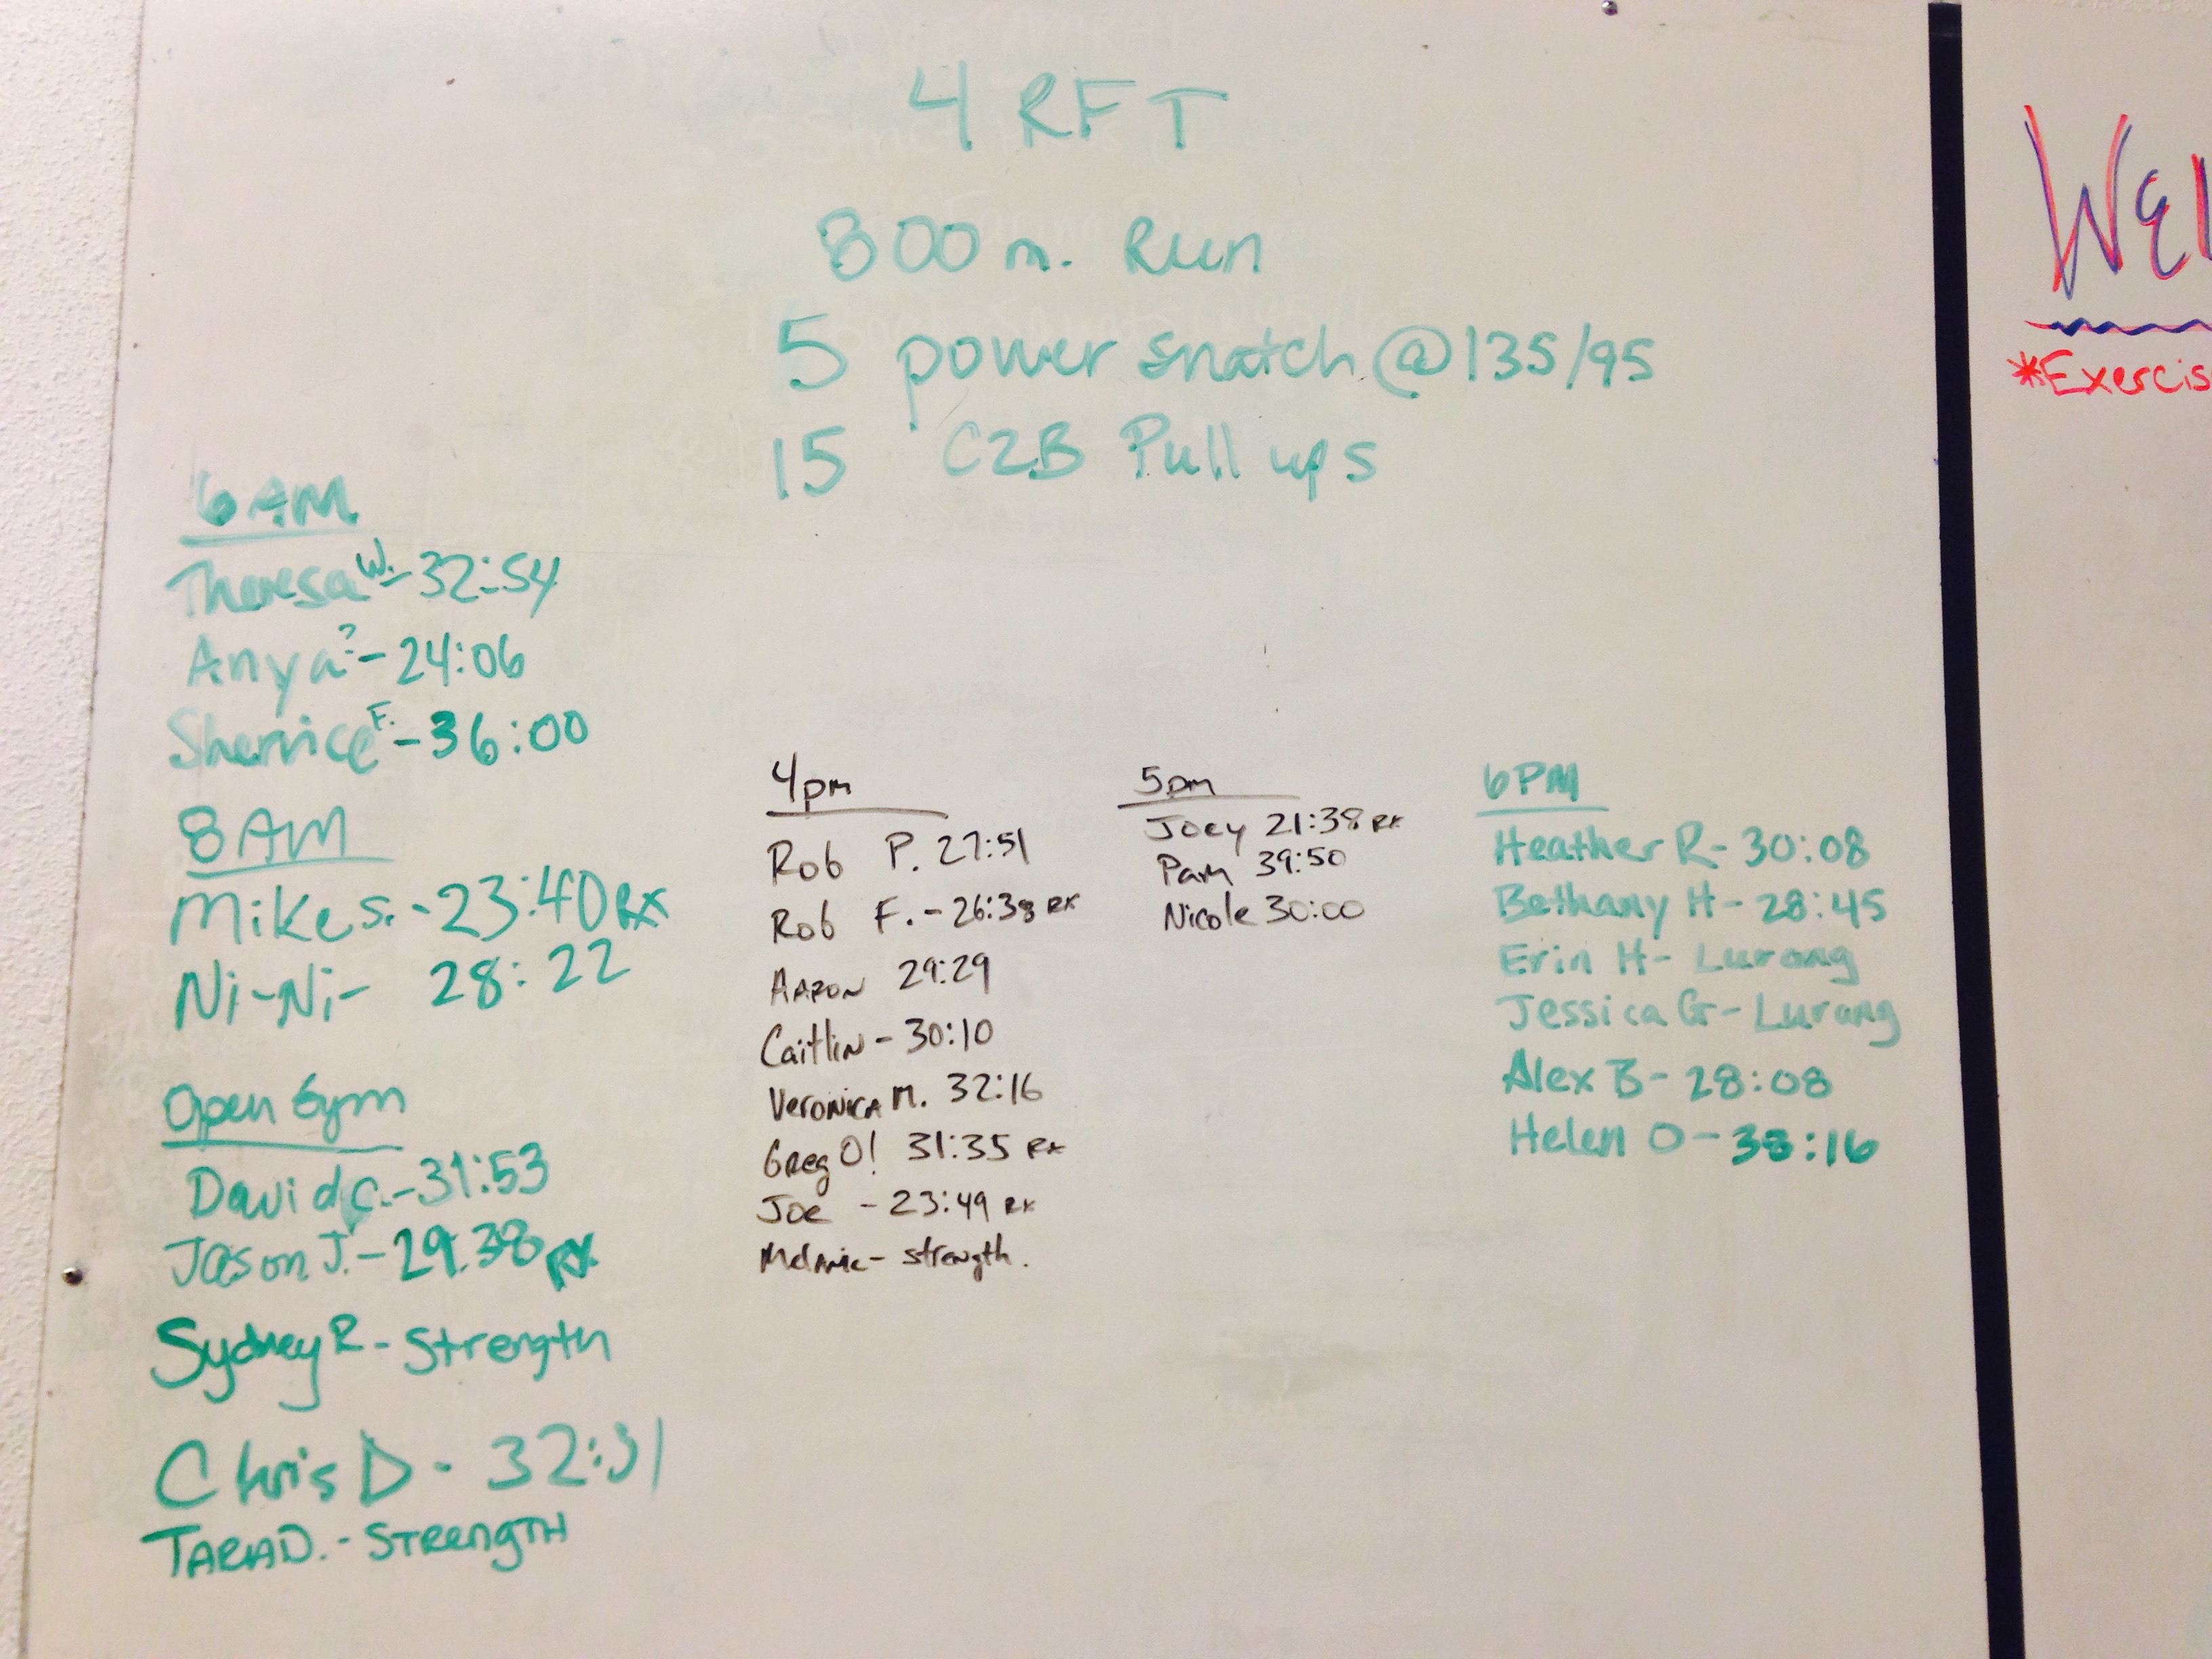 4 RFT
800 m. Run
5 power snatch @ 135/95
15 C2B Pull ups
6 AM
Theresa W. - 32:54
Anya? - 24:06
Shernice F. - 36:00
8 AM
Mike S. - 23:40 RX
Ni-Ni - 28:22
Open Gym
David C. - 31:53
Jason J. - 29:38 RX
Sydney R - Strength
Chris D - 32:31
TARA D. - STRENGTH
4pm
Rob P. 27:51
Rob F. - 26:38 RX
AARON 29:29
Caitlin - 30:10
Veronica M. 32:16
Greg O! 31:35 RX
Joe - 23:49 RX
Melanie - strength.
5pm
Joey 21:38 RX
Pam 39:50
Nicole 30:00
6PM
Heather R - 30:08
Bethany H - 28:45
Erin H - Lurong
Jessica G - Lurong
Alex B - 28:08
Helen O - 38:16
Wel
*Exercis